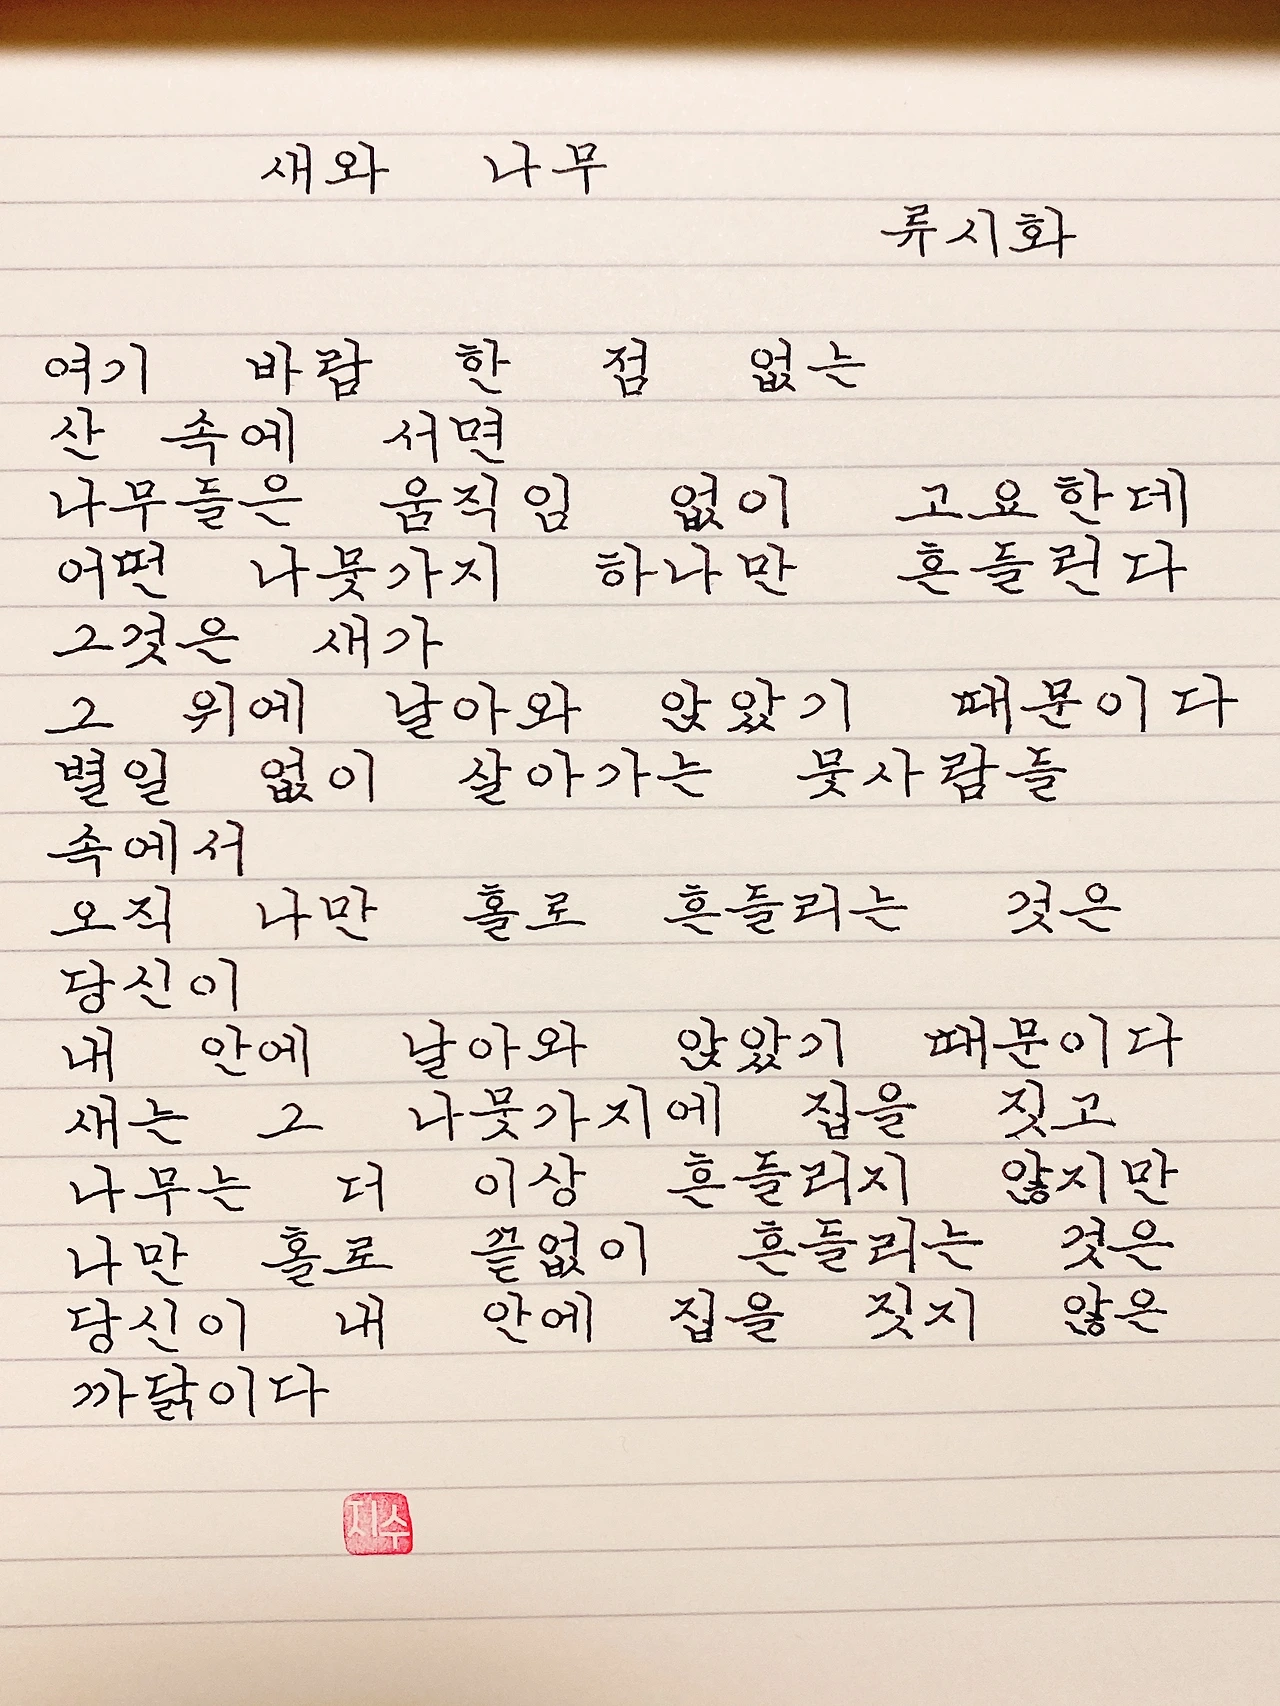 새와 나무
류시화
여기 바람 한 점 없는
산 속에 서면
나무들은 움직임 없이 고요한데
어떤 나뭇가지 하나만 흔들린다
그것은 새가
그 위에 날아와 앉았기 때문이다
별일 없이 살아가는 뭇사람들
속에서
오직 나만 홀로 흔들리는 것은
당신이
내 안에 날아와 앉았기 때문이다
새는 그 나뭇가지에 집을 짓고
나무는 더 이상 흔들리지 않지만
나만 홀로 끝없이 흔들리는 것은
당신이 내 안에 집을 짓지 않은
까닭이다
지수